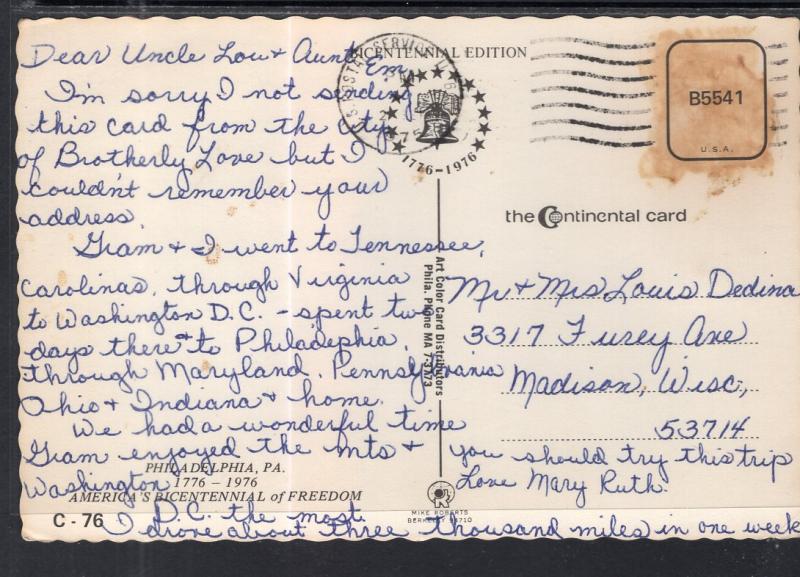 BICENTENNIAL EDITION
Dear Uncle Lou & Aunt Em,
I'm sorry I not sending
this card from the city
of Brotherly Love but I
couldn't remember your
address.
Gram & I went to Tennessee,
Carolinas, through Virginia
to Washington D.C. - spent two
days there & to Philadephia,
through Maryland, Pennsylvania
Ohio & Indiana & home.
We had a wonderful time
Gram enjoyed the mts &
Washington
D.C. the most.
I drove about three thousand miles in one week
you should try this trip
Love Mary Ruth.
PHILADELPHIA, PA.
1776 – 1976
AMERICA'S BICENTENNIAL of FREEDOM
C - 76
1776-1976
B5541
U.S.A.
the Continental card
Art Color Card Distributors
Phila. Phone MA 7-3173
Mr & Mrs Louis Dedina
3317 Furey Ave
Madison, Wisc,
53714
R
MIKE ROBERTS
BERKELEY 94710